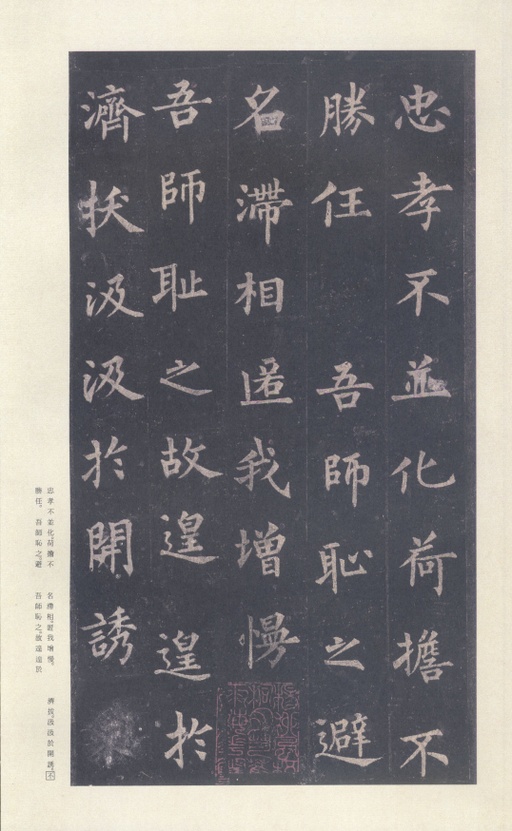 忠孝不並化荷擔不
勝任　吾師恥之避
名滯相匿我增慢
吾師耻之故遑遑於
濟抜汲汲於開誘
忠孝不並化荷擔不
勝任。吾師恥之。避
名滯相匿我增慢。
吾師恥之。故遑遑於
濟拔。汲汲於開誘。不